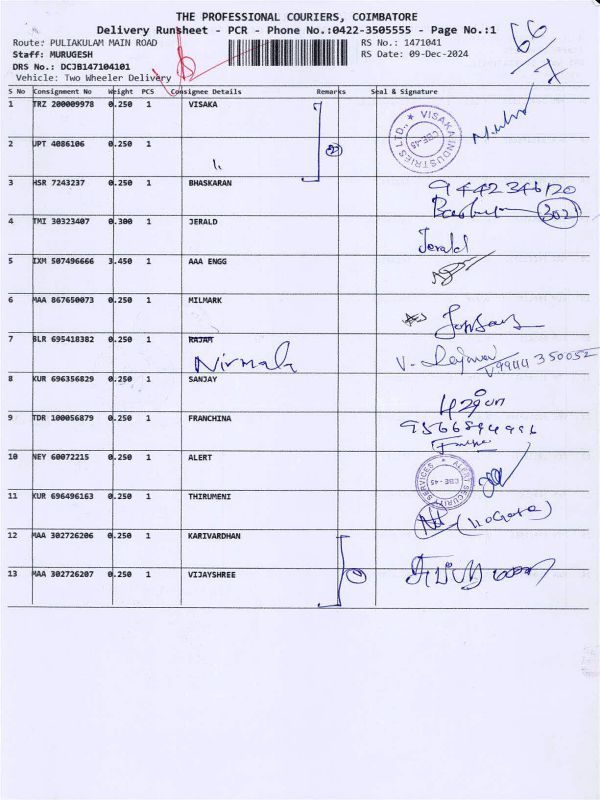 THE PROFESSIONAL COURIERS, COIMBATORE
Delivery Runsheet - PCR - Phone No.:0422-3505555 - Page No.:1
Route: PULIAKULAM MAIN ROAD RS No.: 1471041
Staff: MURUGESH RS Date: 09-Dec-2024
DRS No.: DCJB147104101
Vehicle: Two Wheeler Delivery
66/7
S No Consignment No Weight PCS Consignee Details Remarks Seal & Signature
1 TRZ 200009978 0.250 1 VISAKA
VISAKA INDUSTRIES LTD., CBE-45
2 JPT 4086106 0.250 1
3 HSR 7243237 0.250 1 BHASKARAN 9442346120
302
4 TMI 30323407 0.300 1 JERALD Jerald
5 IXM 507496666 3.450 1 AAA ENGG
6 MAA 867650073 0.250 1 MILMARK
7 BLR 695418382 0.250 1 RAJAM
Nirmala V. 9944350052
8 KUR 696356829 0.250 1 SANJAY
9 TDR 100056879 0.250 1 FRANCHINA
10 NEY 60072215 0.250 1 ALERT
ALERT SECURITY SERVICES CBE-45
11 KUR 696496163 0.250 1 THIRUMENI
12 MAA 302726206 0.250 1 KARIVARDHAN
13 MAA 302726207 0.250 1 VIJAYSHREE